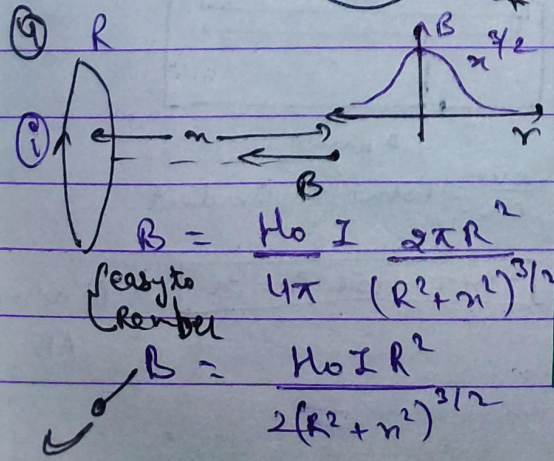 9 R B x^3/2
i x r
B
B = μ₀ I / 4π · 2πR² / (R²+x²)^3/2
{easy to Rember
B = μ₀ I R² / 2(R²+x²)^3/2